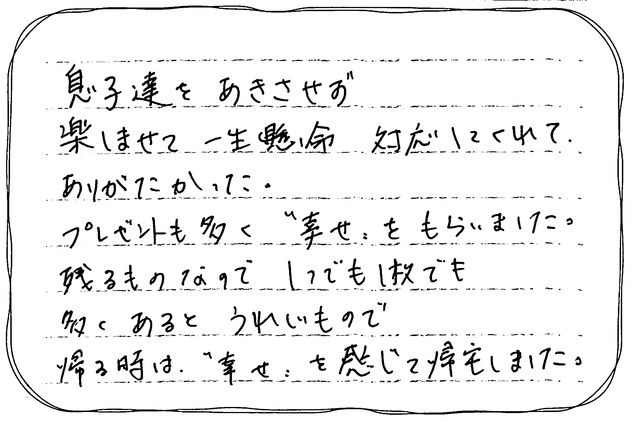 息子達を あきさせず
楽しませて 一生懸命 対応してくれて、
ありがたかった。
プレゼントも多く〝幸せ〟をもらいました。
残るものなので 1つでも1枚でも
多く あると うれしいもので
帰る時は、〝幸せ〟を感じて帰宅しました。